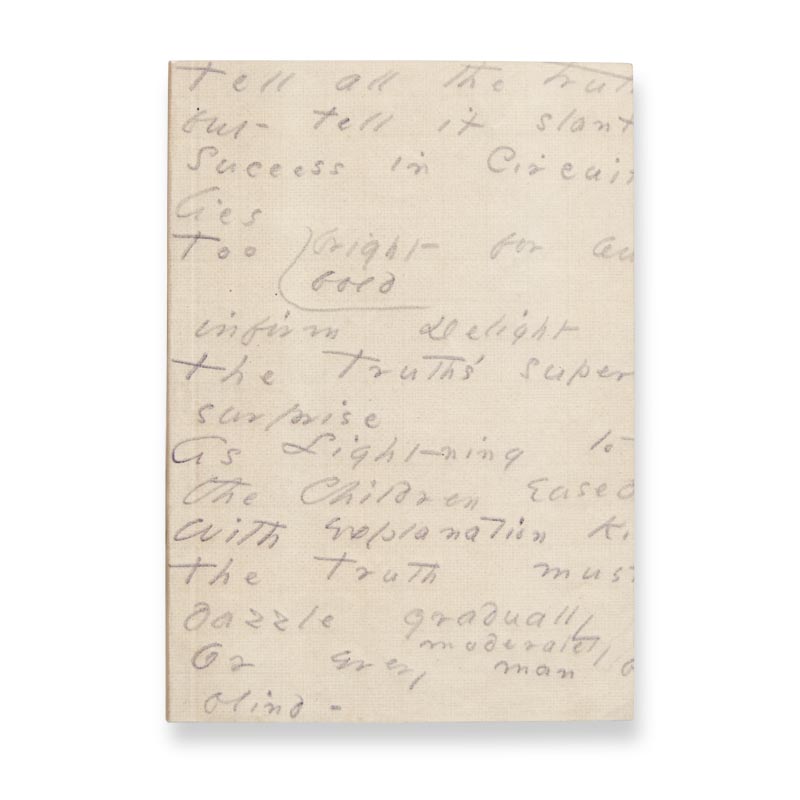 Tell all the trut
but tell it slant
Success in Circuit
lies
Too bright for ou
bold
infirm Delight
the Truth's super
surprise
As Lightning to
the Children Eased
With Explanation Ki
the Truth must
dazzle gradually
moderately
Or every man
blind -